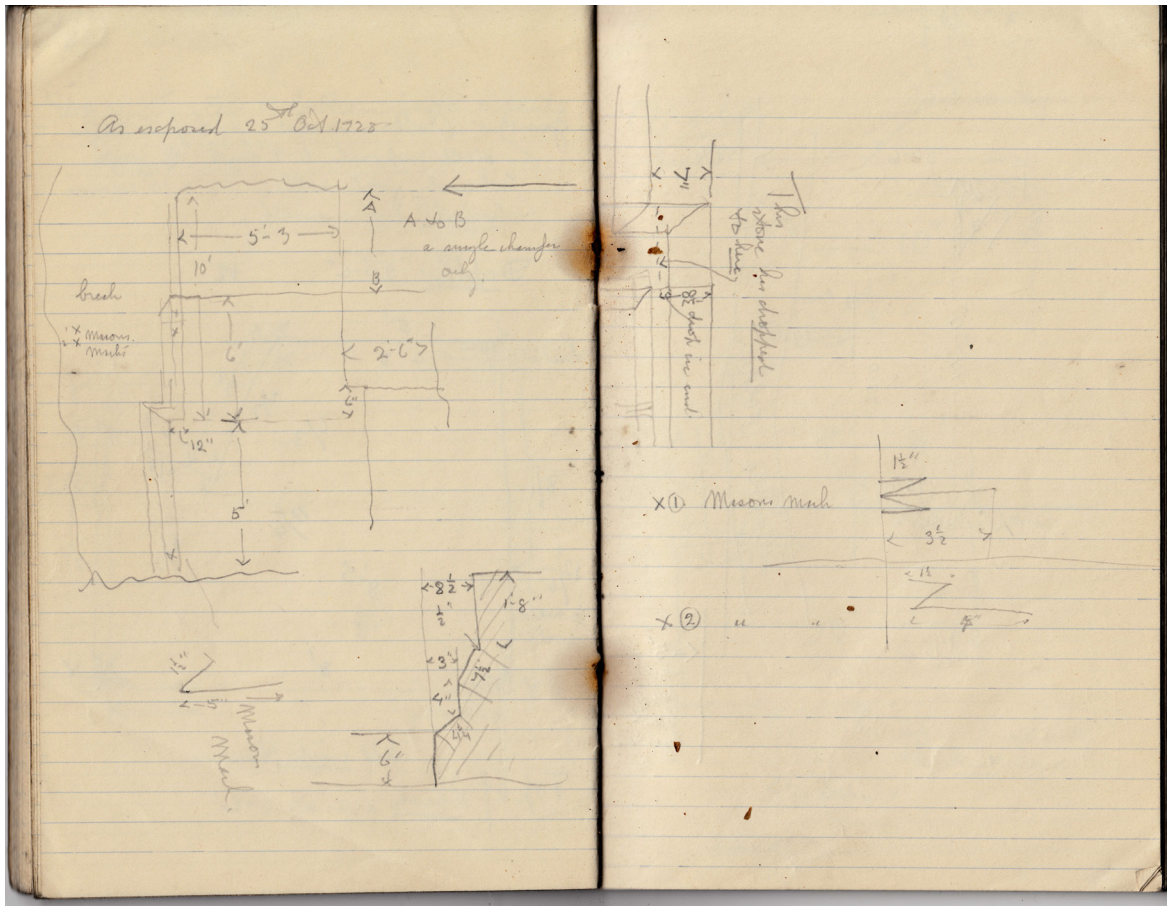 As exposed 25th Oct 1928
A to B
a single chamfer
only.
A
B
5'-3
10'
break
x Masons
x marks
6'
2'-6"
6"
12"
5'
8½
½"
1'-8"
3"
7½"
4"
6"
1½"
Mason
Mark.
This
stone has dropped
to here
7"
8½ drop in end.
1½"
x ① Masons mark
3½
1½
x ② " "
4"